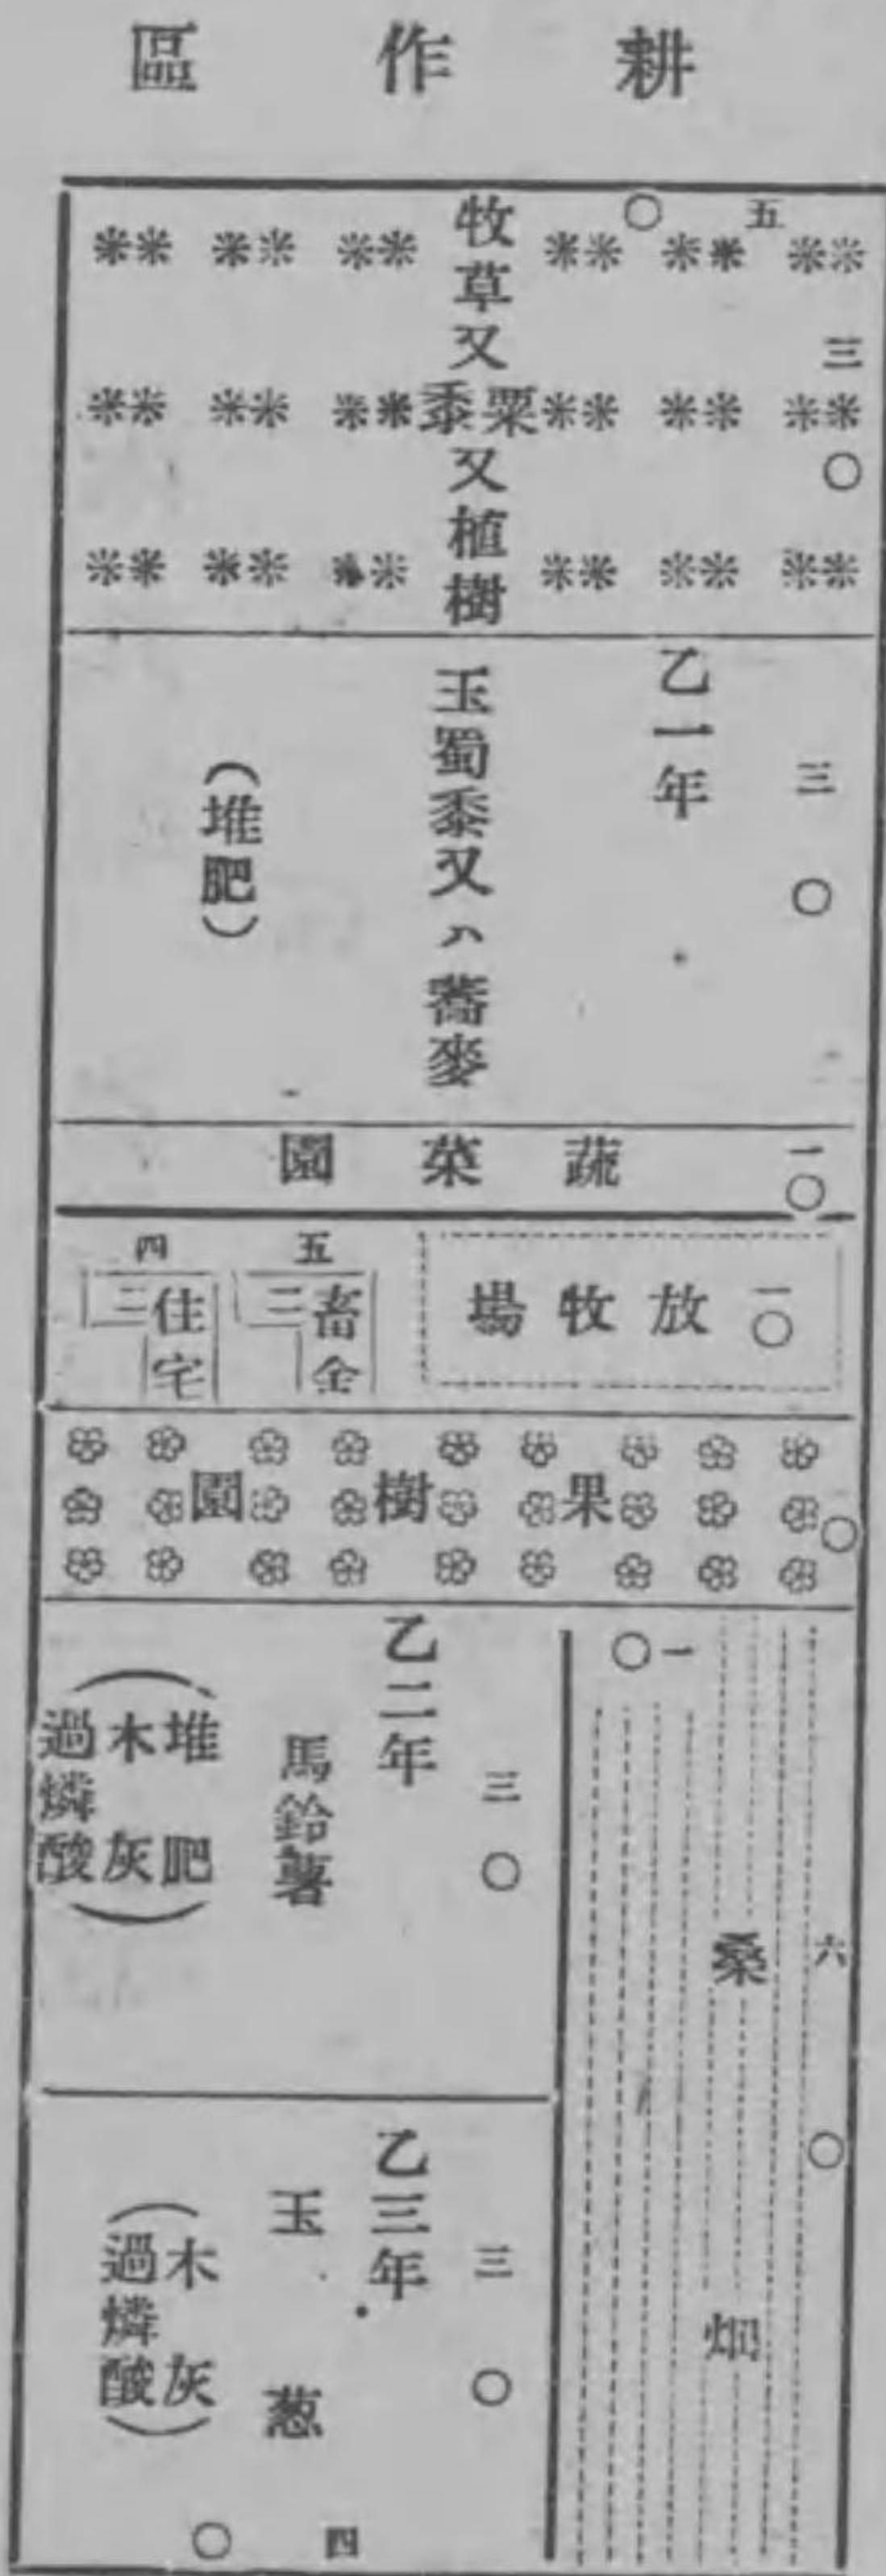 耕作區
五〇
三〇
牧草又粟黍又植樹
三〇
乙一年
玉蜀黍又ハ蕎麥
(堆肥)
一〇
蔬菜園
一〇
放牧場
五
畜舍
二
四
住宅
二
〇
果樹園
六〇
一〇
桑畑
三〇
乙二年
馬鈴薯
(堆肥
木灰
過燐酸)
三〇
乙三年
玉葱
(木灰
過燐酸)
四〇